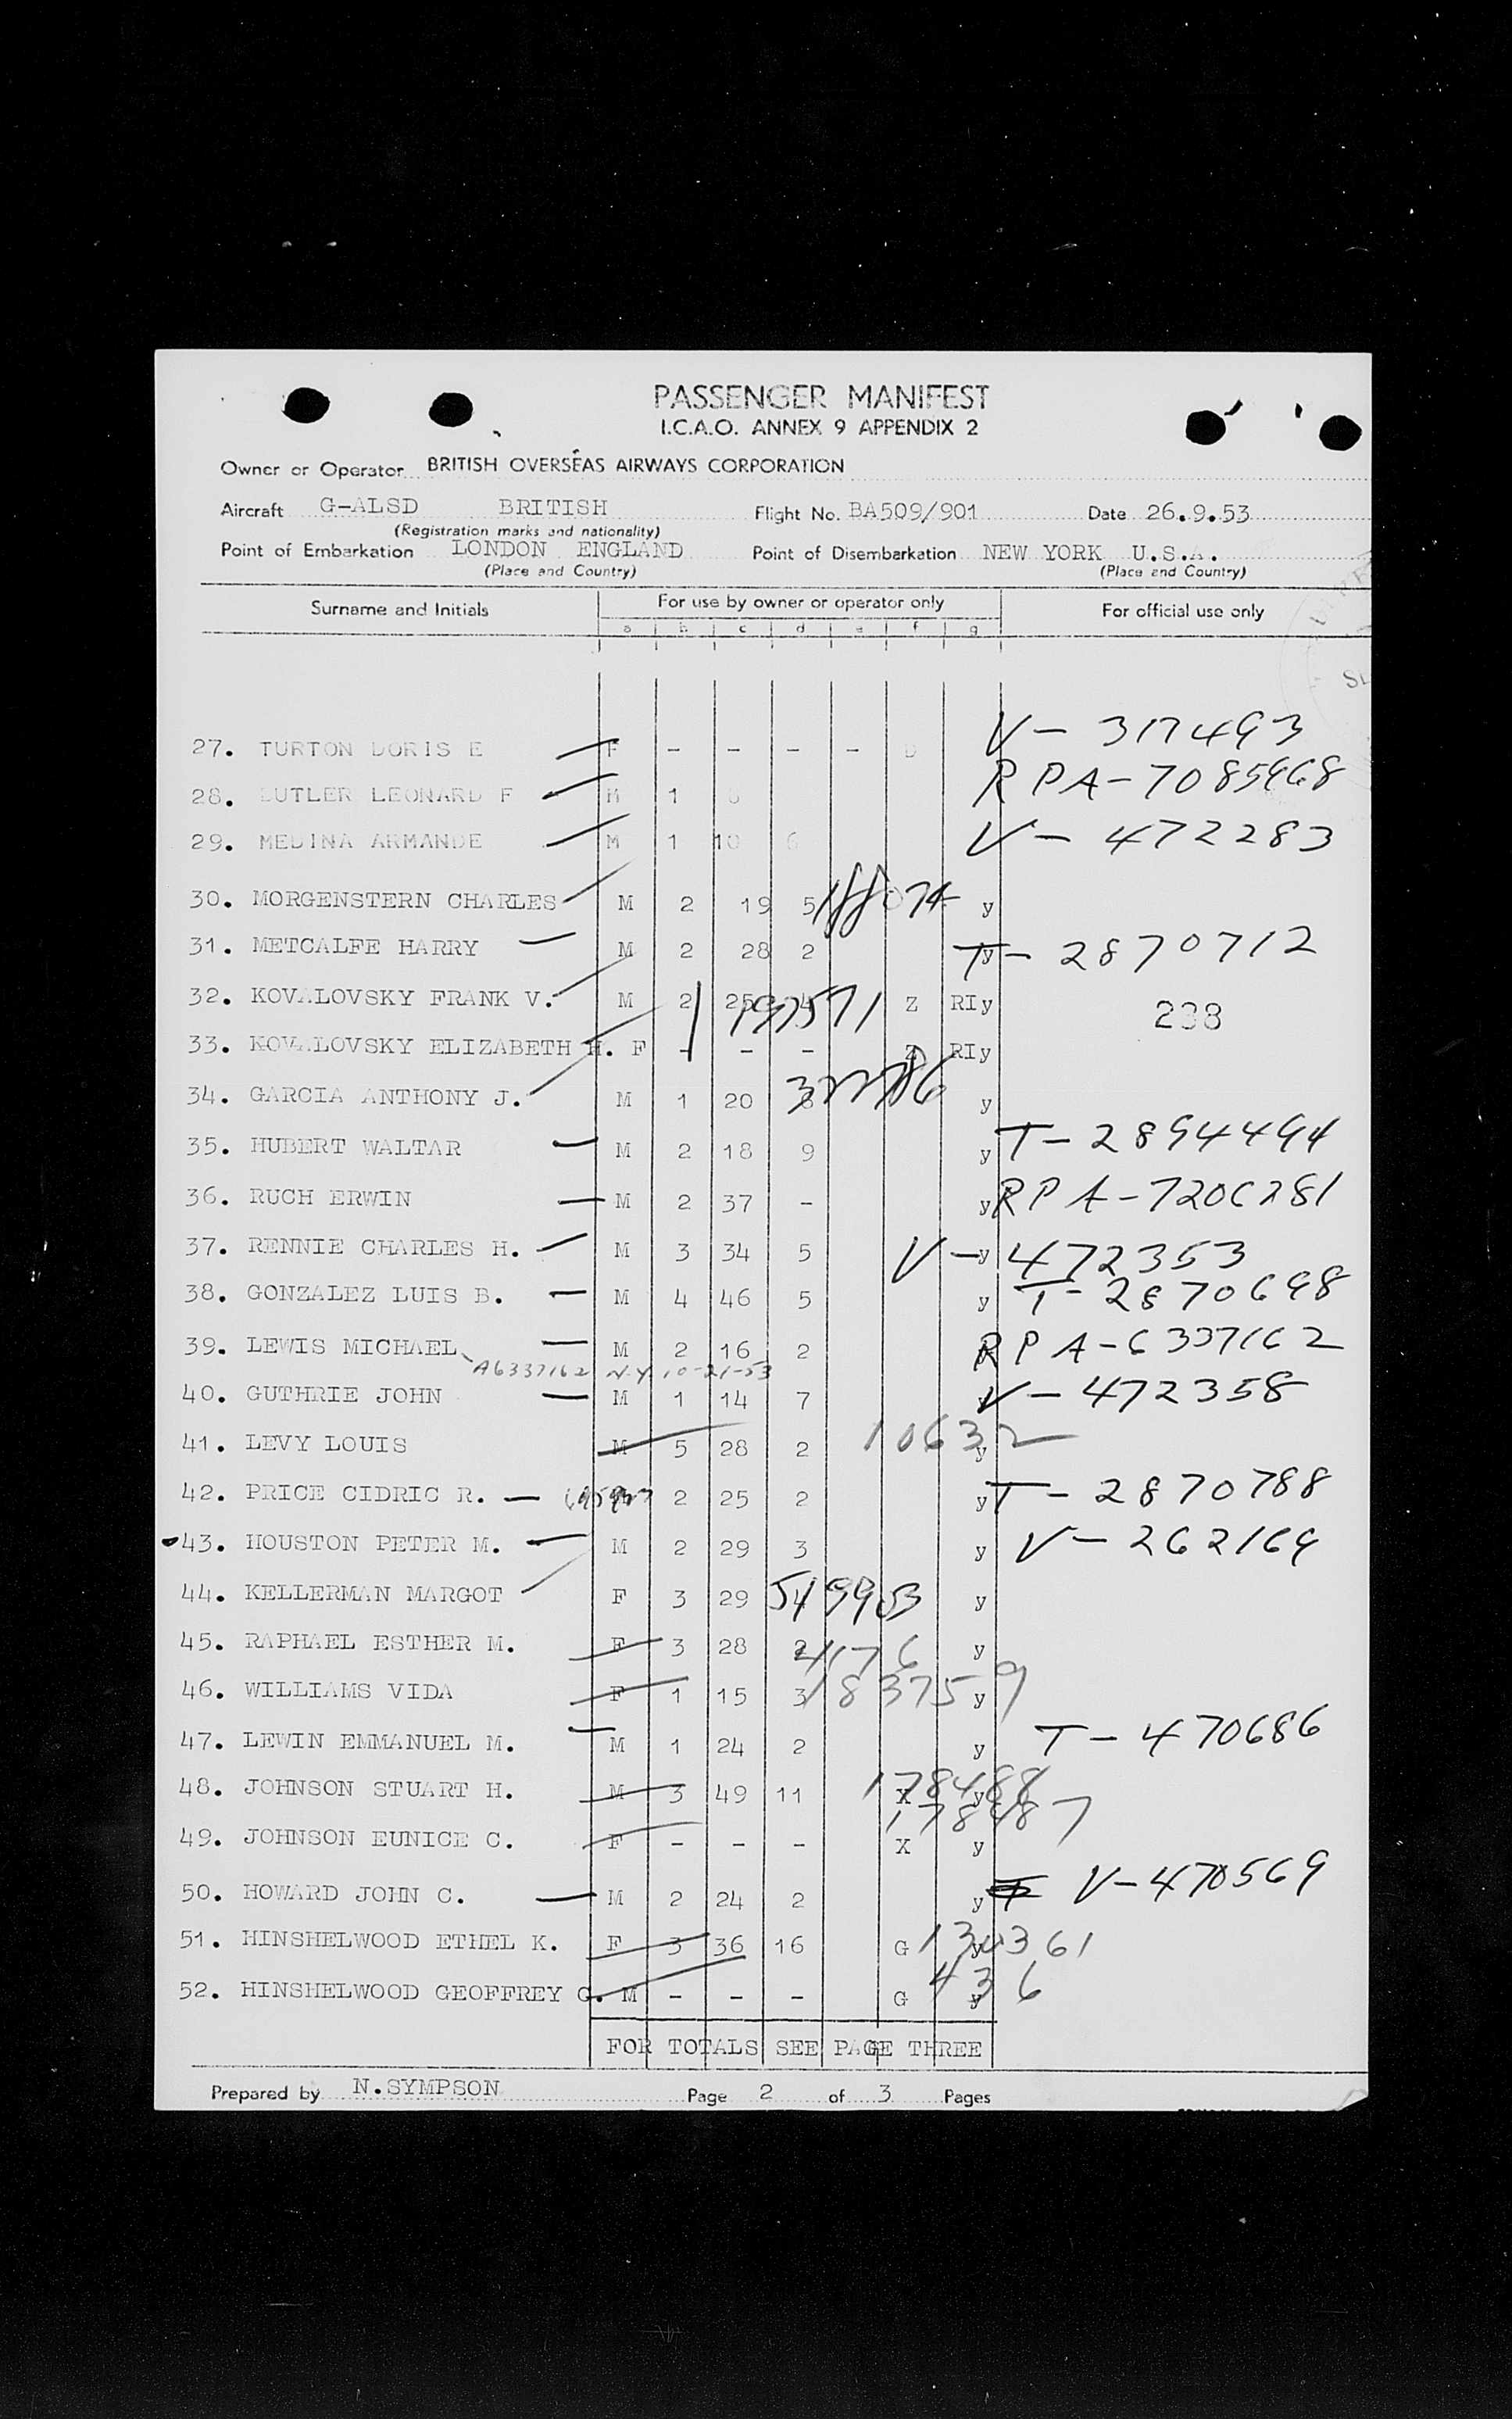 PASSENGER MANIFEST
I.C.A.O. ANNEX 9 APPENDIX 2
Owner or Operator BRITISH OVERSEAS AIRWAYS CORPORATION
Aircraft G-ALSD BRITISH Flight No. BA509/901 Date 26.9.53
(Registration marks and nationality)
Point of Embarkation LONDON ENGLAND Point of Disembarkation NEW YORK U.S.A.
(Place and Country) (Place and Country)
Surname and Initials For use by owner or operator only For official use only
a b c d e f g
27. TURTON DORIS E F - - - - V - 317493
28. LEONARD F M 1 RPA-7085968
29. MEDINA ARMANDE M 1 10 6 V - 472283
30. MORGENSTERN CHARLES M 2 19 5 y
31. METCALFE HARRY M 2 28 2 y T - 2870712
32. KOVALOVSKY FRANK V. M 2 25 4 197571 Z RIy 238
33. KOVALOVSKY ELIZABETH H. F - - - Z RIy
34. GARCIA ANTHONY J. M 1 20 8 y
35. HUBERT WALTAR M 2 18 9 y T - 2894494
36. RUCH ERWIN M 2 37 - y RPA-7206281
37. RENNIE CHARLES H. M 3 34 5 y V - 472353
38. GONZALEZ LUIS B. M 4 46 5 y T - 2870698
39. LEWIS MICHAEL M 2 16 2 RPA-6337162
A6337162 N.Y. 10-21-53
40. GUTHRIE JOHN M 1 14 7 V - 472358
41. LEVY LOUIS M 5 28 2 10632 y
42. PRICE CIDRIC R. 2 25 2 y T - 2870788
43. HOUSTON PETER M. M 2 29 3 y V - 262169
44. KELLERMAN MARGOT F 3 29 549953 y
45. RAPHAEL ESTHER M. F 3 28 2 4176 y
46. WILLIAMS VIDA F 1 15 3 183759 y
47. LEWIN EMMANUEL M. M 1 24 2 y T - 470686
48. JOHNSON STUART H. M 3 49 11 178488 X y
178487
49. JOHNSON EUNICE C. F - - - X y
50. HOWARD JOHN C. M 2 24 2 y V-470569
51. HINSHELWOOD ETHEL K. F 3 36 16 G y
52. HINSHELWOOD GEOFFREY G. M - - - G y 436
FOR TOTALS SEE PAGE THREE
Prepared by N.SYMPSON Page 2 of 3 Pages